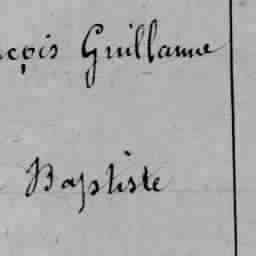 nçois Guillaume
Baptiste